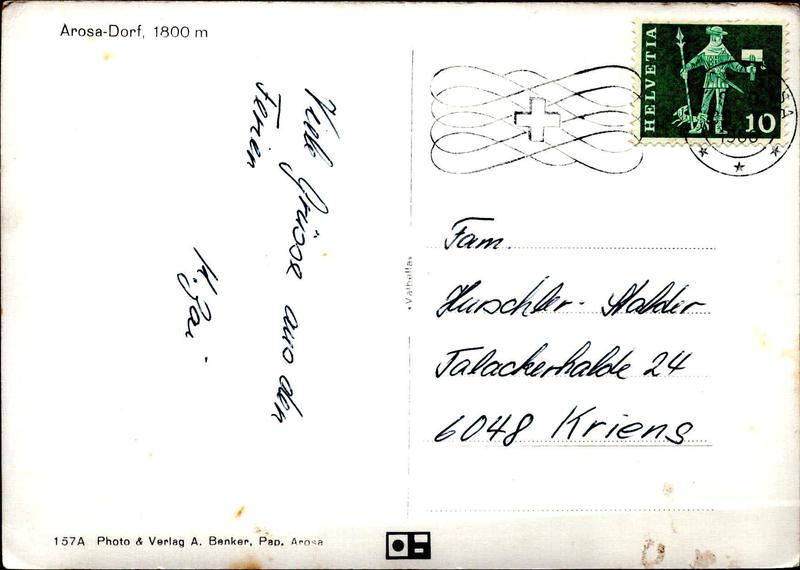 Arosa-Dorf, 1800 m
Viele Grüsse aus den
Ferien
HELVETIA
10
Fam.
Hurschler-Stalder
Talackerhalde 24
6048 Kriens
«Valbella»
157A Photo & Verlag A. Benker, Pap. Arosa